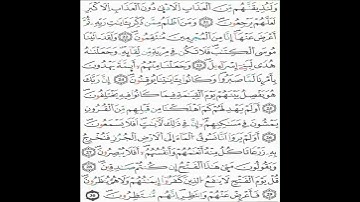 وَلَنُذِيقَنَّهُم مِّنَ ٱلْعَذَابِ ٱلْأَدْنَىٰ دُونَ ٱلْعَذَابِ ٱلْأَكْبَرِ
لَعَلَّهُمْ يَرْجِعُونَ ٢١ وَمَنْ أَظْلَمُ مِمَّن ذُكِّرَ بِـَٔايَٰتِ رَبِّهِۦ ثُمَّ
أَعْرَضَ عَنْهَآ إِنَّا مِنَ ٱلْمُجْرِمِينَ مُنتَقِمُونَ ٢٢ وَلَقَدْ ءَاتَيْنَا
مُوسَى ٱلْكِتَٰبَ فَلَا تَكُن فِى مِرْيَةٍ مِّن لِّقَآئِهِۦ وَجَعَلْنَٰهُ
هُدًى لِّبَنِىٓ إِسْرَٰٓءِيلَ ٢٣ وَجَعَلْنَا مِنْهُمْ أَئِمَّةً يَهْدُونَ
بِأَمْرِنَا لَمَّا صَبَرُوا۟ وَكَانُوا۟ بِـَٔايَٰتِنَا يُوقِنُونَ ٢٤ إِنَّ رَبَّكَ
هُوَ يَفْصِلُ بَيْنَهُمْ يَوْمَ ٱلْقِيَٰمَةِ فِيمَا كَانُوا۟ فِيهِ يَخْتَلِفُونَ
٢٥ أَوَلَمْ يَهْدِ لَهُمْ كَمْ أَهْلَكْنَا مِن قَبْلِهِم مِّنَ ٱلْقُرُونِ
يَمْشُونَ فِى مَسَٰكِنِهِمْ إِنَّ فِى ذَٰلِكَ لَـَٔايَٰتٍ أَفَلَا يَسْمَعُونَ
٢٦ أَوَلَمْ يَرَوْا۟ أَنَّا نَسُوقُ ٱلْمَآءَ إِلَى ٱلْأَرْضِ ٱلْجُرُزِ فَنُخْرِجُ
بِهِۦ زَرْعًا تَأْكُلُ مِنْهُ أَنْعَٰمُهُمْ وَأَنفُسُهُمْ أَفَلَا يُبْصِرُونَ ٢٧
وَيَقُولُونَ مَتَىٰ هَٰذَا ٱلْفَتْحُ إِن كُنتُمْ صَٰدِقِينَ ٢٨
قُلْ يَوْمَ ٱلْفَتْحِ لَا يَنفَعُ ٱلَّذِينَ كَفَرُوٓا۟ إِيمَٰنُهُمْ وَلَا هُمْ يُنظَرُونَ
٢٩ فَأَعْرِضْ عَنْهُمْ وَٱنتَظِرْ إِنَّهُم مُّنتَظِرُونَ ٣٠